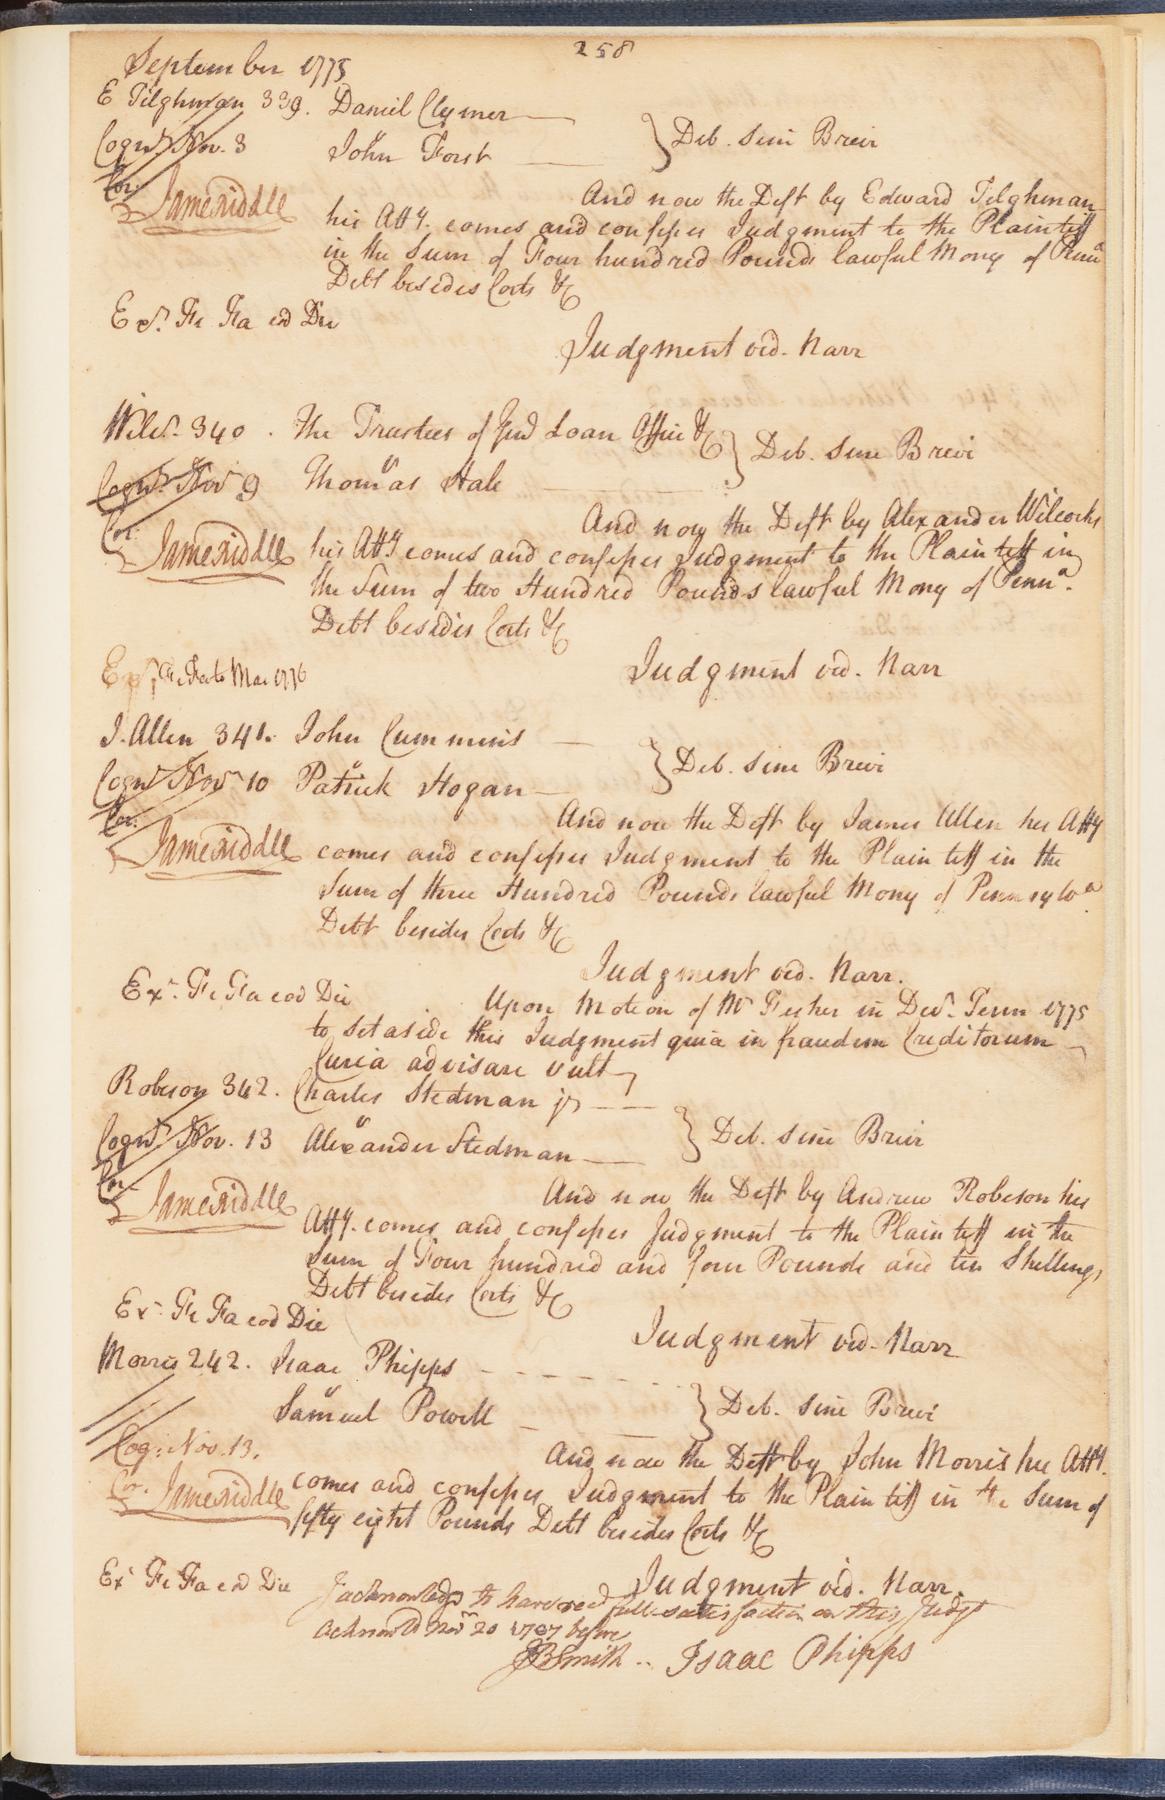 258
September 1775
E Tilghman 339. Daniel Clymer
vs
Cogn.d Nov. 3 John Forst } Deb. Sine Brevi
Cor.
James Biddle
And now the Deft by Edward Tilghman
his Atty. comes and confesses Judgment to the Plaintiff
in the Sum of Four hundred Pounds lawful Mony of Penna
Debt besides Costs &c
Ex. Fi Fa eod Die
Judgment vid. Narr
Wilcs. 340. The Trustees of Genl Loan Office &c
vs
Cogn.d Nov 9 Thomas Hale } Deb. Sine Brevi
Cor.
James Biddle
And now the Deft by Alexander Wilcocks
his Atty comes and confesses Judgment to the Plaintiff in
the Sum of two Hundred Pounds lawful Mony of Penna.
Debt besides Costs &c
Judgment vid. Narr
Ex. Fi Fa to Mar 1776
J. Allen 341. John Cummins
vs
Cogn.d Nov 10 Patrick Hogan } Deb. Sine Brevi
Cor.
James Biddle
And now the Deft by James Allen his Atty
comes and confesses Judgment to the Plaintiff in the
Sum of three Hundred Pounds lawful Mony of Pennsylva
Debt besides Costs &c
Judgment vid. Narr.
Ex. Fi Fa eod Die
Upon Motion of Mr Fisher in Decr. Term 1775
to set aside this Judgment quia in fraudem Creditorum
Curia advisare vult
Robeson 342. Charles Stedman jr
vs
Cogn.d Nov. 13 Alexander Stedman } Deb. Sine Brevi
Cor.
James Biddle
And now the Deft by Andrew Robeson his
Atty. comes and confesses Judgment to the Plaintiff in the
Sum of Four hundred and four Pounds and ten Shillings
Debt besides Costs &c
Ex. Fi Fa eod Die
Judgment vid. Narr
Morris 242. Isaac Phipps
vs
Samuel Powell } Deb. Sine Brevi
Cog: Nov. 13.
Cor.
James Biddle
And now the Deft by John Morris his Atty.
comes and confesses Judgment to the Plaintiff in the Sum of
fifty eight Pounds Debt besides Costs &c
Ex. Fi Fa eod Die
Judgment vid. Narr.
I acknowledge to have recd full satisfaction on this Judgt
acknowd Novr 20 1787 before
JBSmith .. Isaac Phipps